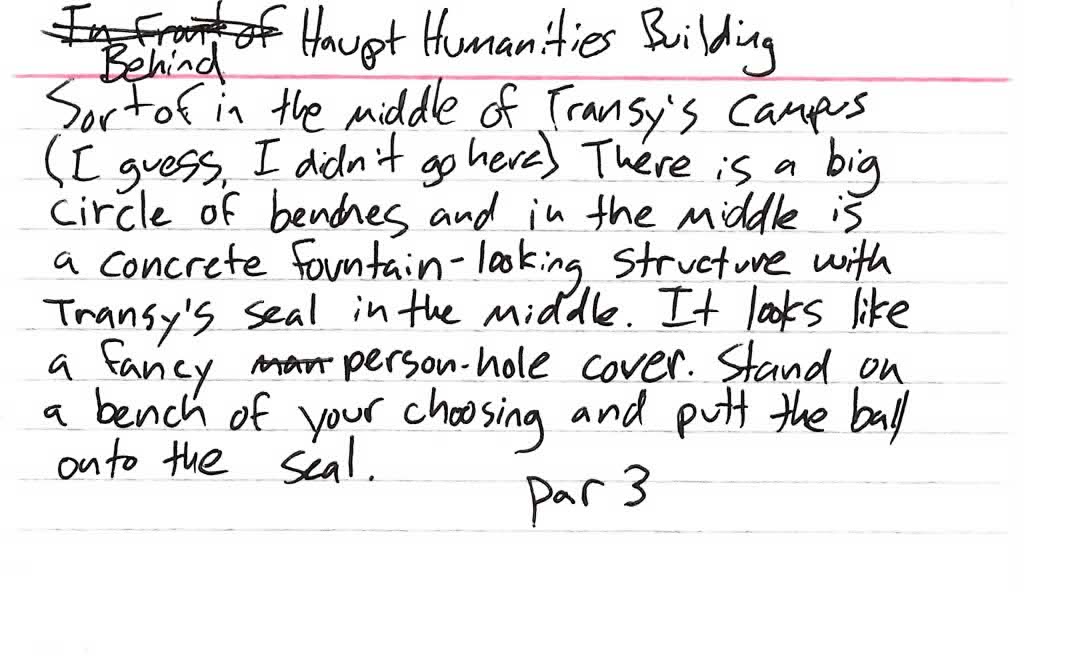 In Front of Haupt Humanities Building
Behind
Sort of in the middle of Transy's campus
(I guess, I didn't go here) There is a big
circle of benches and in the middle is
a concrete fountain-looking structure with
Transy's seal in the middle. It looks like
a fancy man person-hole cover. Stand on
a bench of your choosing and putt the ball
onto the seal.
par 3